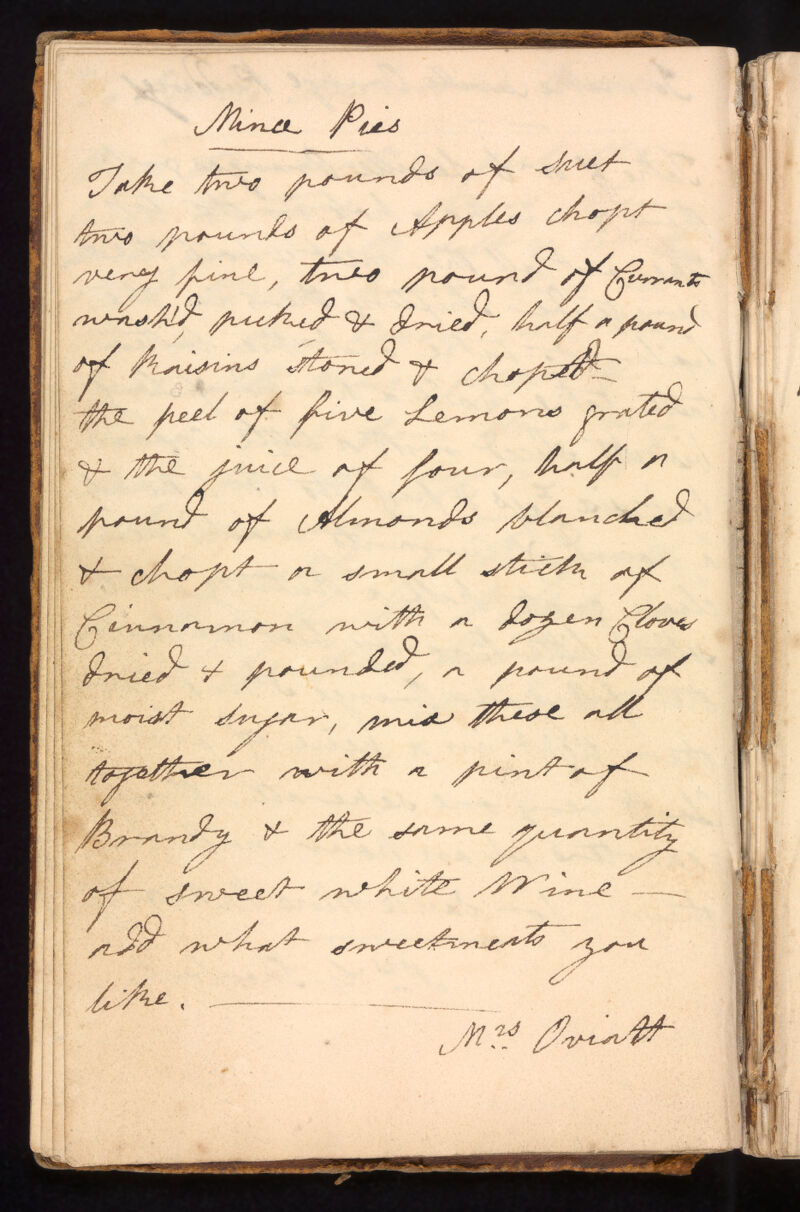 Mince Pies
Take two pounds of suet
two pounds of Apples chopt
very fine, two pound of Currants
wash'd, picked & dried, half a pound
of Raisins stoned & choped
the peel of five Lemons grated
& the juice of four, half a
pound of Almonds blanched
& chopt a small stick of
Cinnamon with a dozen Cloves
dried & pounded, a pound of
moist sugar, mix these all
together with a pint of
Brandy & the same quantity
of sweet white Wine —
add what sweetmeats you
like. —
Mrs. Oviatt